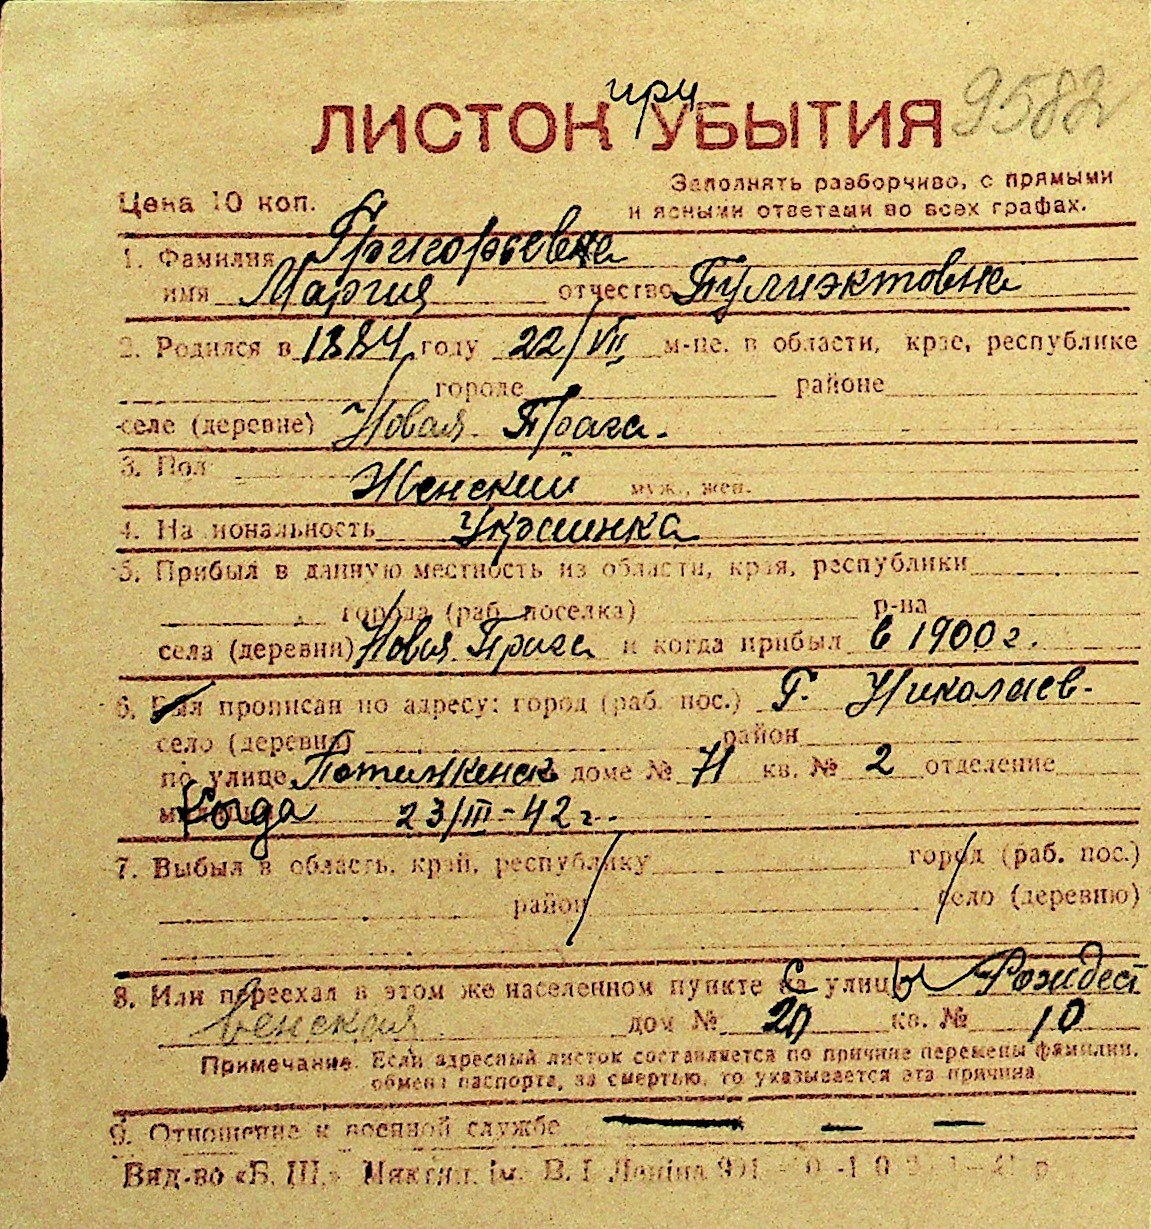 при
ЛИСТОК УБЫТИЯ 9582
Цена 10 коп.
Заполнять разборчиво, с прямыми
и ясными ответами во всех графах.
1. Фамилия Григорьевна
имя Мария отчество
2. Родился в 1884 году 22/VII м-це. в области, крае, республике
городе районе
селе (деревне) Новая Прага.
3. Пол Женский муж., жен.
4. Национальность Украинка
5. Прибыл в данную местность из области, края, республики
города (раб. поселка) р-на
села (деревни) Новая Прага и когда прибыл в 1900 г.
6. Был прописан по адресу: город (раб. пос.) г. Николаев.
село (деревня) район
по улице доме № 71 кв. № 2 отделение
милиции Когда 23/III-42 г.
7. Выбыл в область, край, республику город (раб. пос.)
район село (деревню)
8. Или переехал в этом же населенном пункте с улицы Рождест
венская дом № 20 кв. № 10
Примечание. Если адресный листок составляется по причине перемены фамилии,
обмена паспорта, за смертью, то указывается эта причина.
9. Отношение к военной службе — — —
Вид-во «Б. Ш.» Микгил. ім. В. І Леніна